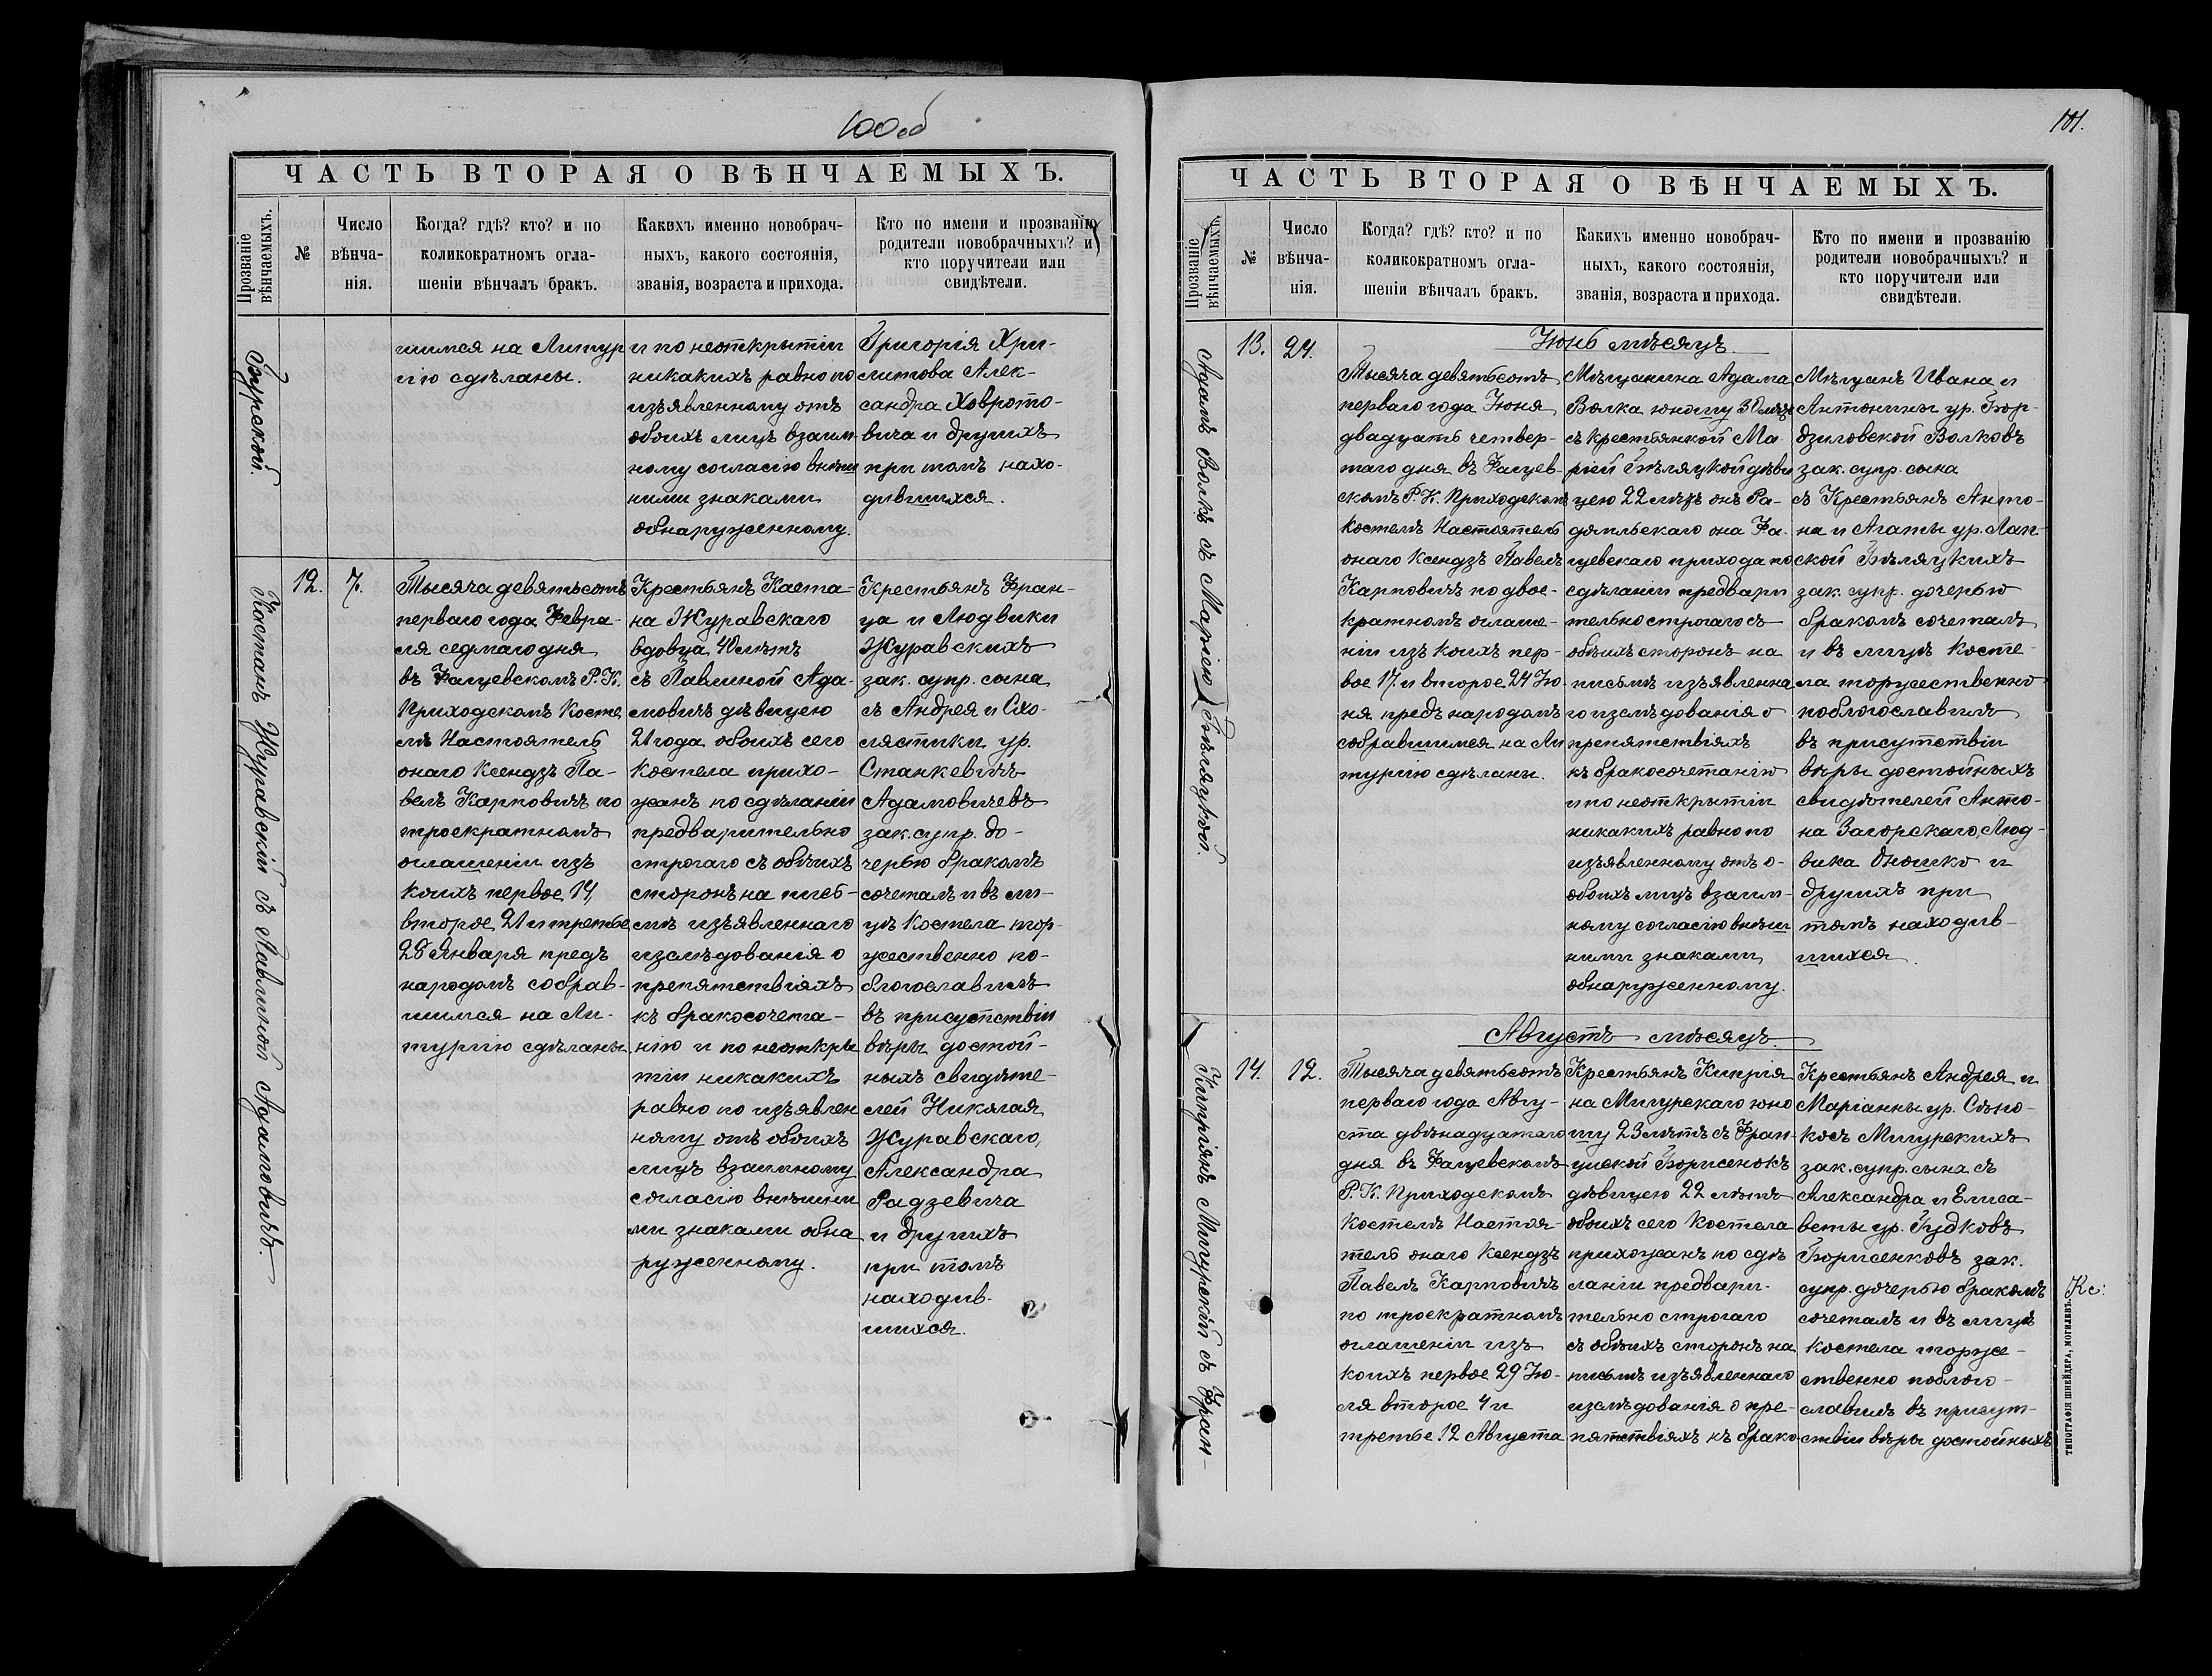 100 об
ЧАСТЬ ВТОРАЯ О ВѢНЧАЕМЫХЪ.
Прозваніе
вѣнчаемыхъ.
№
Число
вѣнча-
нія.
Когда? гдѣ? кто? и по
коликократномъ огла-
шеніи вѣнчалъ бракъ.
Какихъ именно новобрач-
ныхъ, какого состоянія,
званія, возраста и прихода.
Кто по имени и прозванію
родители новобрачныхъ? и
кто поручители или
свидѣтели.
шимся на Литур
гію сдѣланы.
и по неоткрытіи
никакихъ равно по
изъявленному отъ
обоихъ лицъ взаим
ному согласію внѣш
ними знаками
обнаруженному.
Григорія Хри-
литова Алек-
сандра Ховрото-
вича и другихъ
при томъ нахо-
дившихся.
Каспанъ Журавскій съ Павлиной Адамовичъ.
12.
7.
Тысяча девятьсотъ
перваго года Февра-
ля седмаго дня
въ Фащевскомъ Р. К.
Приходскомъ Косте
лѣ Настоятель
онаго Ксендзъ Па-
велъ Карповичъ по
троекратномъ
оглашеніи изъ
коихъ первое 14,
второе 21 и третье
28 Января предъ
народомъ собрав-
шимся на Ли-
тургію сдѣланы
Крестьянъ Каста-
на Журавскаго
вдовца 40 лѣтъ
съ Павлиной Ада-
мовичъ дѣвицею
21 года обоихъ сего
Костела прихо-
жанъ по сдѣланіи
предварительно
строгаго съ обѣихъ
сторонъ на пись-
мѣ изъявленнаго
изслѣдованія о
препятствіяхъ
къ бракосочета-
нію и по неоткры
тіи никакихъ
равно по изъявлен
ному отъ обоихъ
лицъ взаимному
согласію внѣшни
ми знаками обна
руженному.
Крестьянъ Фран-
ца и Людвики
Журавскихъ
зак. супр. сына
съ Андрея и Схо-
лястики ур.
Станкевичъ
Адамовичевъ
зак. супр. до-
черью бракомъ
сочеталъ и въ ли-
цѣ Костела тор-
жественно по-
благославилъ
въ присутствіи
вѣры достой-
ныхъ свидѣте-
лей Николая
Журавскаго,
Александра
Радзевича
и другихъ
при томъ
находив-
шихся.
101.
ЧАСТЬ ВТОРАЯ О ВѢНЧАЕМЫХЪ.
Прозваніе
вѣнчаемыхъ.
№
Число
вѣнча-
нія.
Когда? гдѣ? кто? и по
коликократномъ огла-
шеніи вѣнчалъ бракъ.
Какихъ именно новобрач-
ныхъ, какого состоянія,
званія, возраста и прихода.
Кто по имени и прозванію
родители новобрачныхъ? и
кто поручители или
свидѣтели.
Адамъ Волкъ съ Маріею Бѣляцкой.
13.
24.
Іюнь мѣсяцъ
Тысяча девятьсотъ
перваго года Іюня
двадцать четвер-
таго дня въ Фащев-
скомъ Р. К. Приходскомъ
Костелѣ Настоятель
онаго Ксендзъ Павелъ
Карповичъ по двое-
кратномъ оглаше-
ніи изъ коихъ пер-
вое 17 и второе 24 Ію-
ня предъ народомъ
собравшимся на Ли
тургію сдѣланы.
Мѣщанина Адама
Волка юношу 30 лѣтъ
съ крестьянкой Ма-
ріей Бѣляцкой дѣви
цею 22 лѣтъ онъ Ра-
домльскаго она Фа-
щевскаго прихода по
сдѣланіи предвари
тельно строгаго съ
обѣихъ сторонъ на
письмѣ изъявленна
го изслѣдованія о
препятствіяхъ
къ бракосочетанію
и по неоткрытіи
никакихъ равно по
изъявленному отъ о-
обоихъ лицъ взаим-
ному согласію внѣш
ними знаками
обнаруженному.
Мѣщанъ Ивана и
Антонины ур. Бор-
дзиловской Волковъ
зак. супр. сына
съ Крестьянъ Анто-
на и Агаты ур. Лап-
ской Бѣляцкихъ
зак. супр. дочерью
бракомъ сочеталъ
и въ лицѣ Косте-
ла торжественно
поблогославилъ
въ присутствіи
вѣры достойныхъ
свидѣтелей Анто-
на Загорскаго, Люд-
вика Оношко и
другихъ при
томъ находив-
шихся.
Кипріянъ Мицурскій съ Фран-
14.
12.
Августъ мѣсяцъ.
Тысяча девятьсотъ
перваго года Авгу-
ста двѣнадцатаго
дня въ Фащевскомъ
Р. К. Приходскомъ
Костелѣ Настоя-
тель онаго Ксендзъ
Павелъ Карповичъ
по троекратномъ
оглашеніи изъ
коихъ первое 29 Ію-
ля второе 4 и
третье 12 Августа
Крестьянъ Кипрія
на Мицурскаго юно
шу 23 лѣтъ съ Фран-
циской Борисенокъ
дѣвицею 22 лѣтъ
обоихъ сего Костела
прихожанъ по сдѣ
ланіи предвари-
тельно строгаго
съ обѣихъ сторонъ на
письмѣ изъявленнаго
изслѣдованія о пре-
пятствіяхъ къ брако
Крестьянъ Андрея и
Маріанны ур. Сѣно-
косъ Мицурскихъ
зак. супр. сына съ
Александра и Елиса-
веты ур. Гудковъ
Борисенковъ зак.
супр. дочерью бракомъ
сочеталъ и въ лицѣ
костела торже-
ственно поблого-
славилъ въ присут-
ствіи вѣры достойныхъ
Кс:
ТИПОГРАФІЯ ШНЕЙДЕРА, МОГИЛЕВЪ.